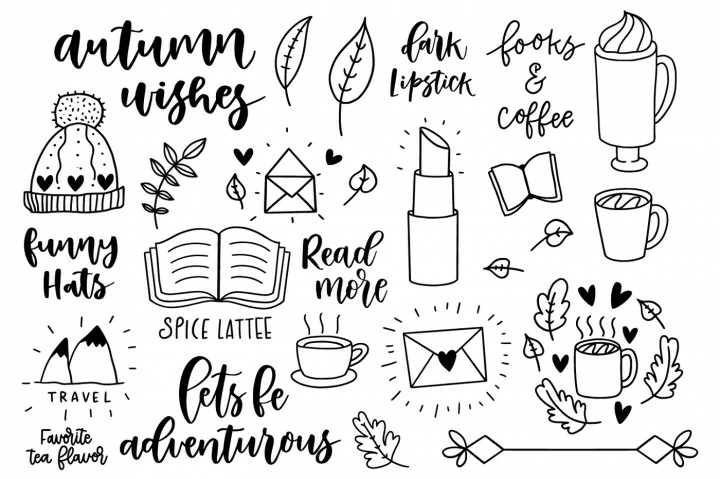 autumn
wishes
dark
Lipstick
fooks
&
coffee
funny
Hats
Read
more
SPICE LATTEE
TRAVEL
lets be
adventurous
Favorite
tea flavor